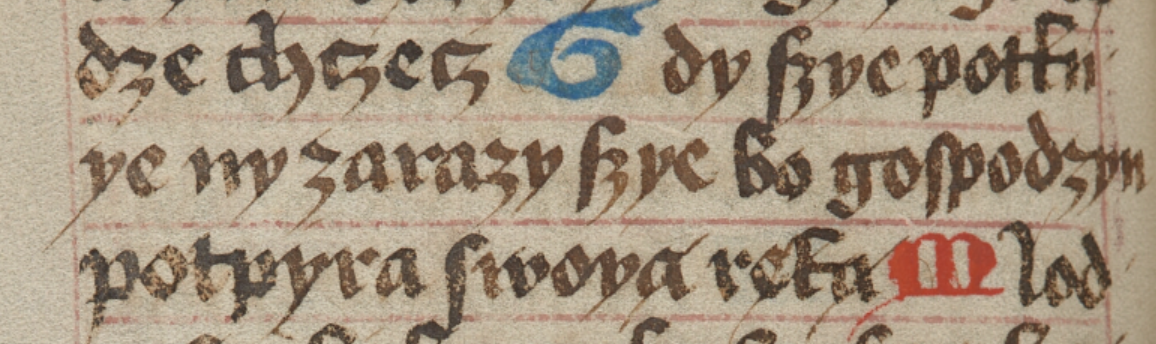 dze chczecz Gdy szye potkn
ye ny zarazy szye bo gospodzyn
potpyra swoyą ręką Mlod